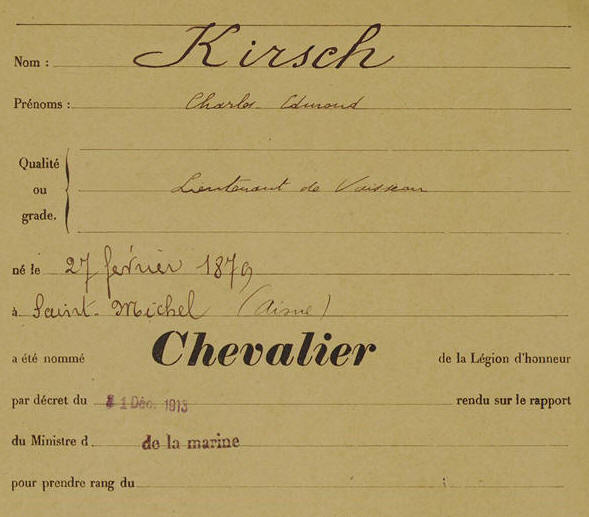 Nom : Kirsch
Prénoms : Charles Edmond
Qualité
ou
grade.
Lieutenant de Vaisseau
né le 27 février 1879
à Saint-Michel (Aisne)
a été nommé Chevalier de la Légion d'honneur
par décret du 31 Déc. 1913 rendu sur le rapport
du Ministre d de la marine
pour prendre rang du